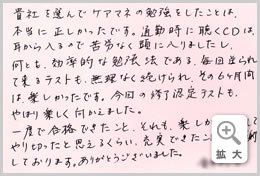 貴社を選んでケアマネの勉強をしたことは、
本当に正しかったです。通勤時に聴くCDは、
耳から入るので苦労なく頭に入りましたし、
何とも、効率的な勉強法である、毎回送られ
て来るテストも、無理なく続けられ、その6ヶ月間
は、楽しかったです。今回の修了認定テストも、
やはり楽しく向かえました。
一度で合格できたこと、それも、楽し
やり切ったと思えるくらい、充実できたこ
しております。ありがとうございました。
拡大